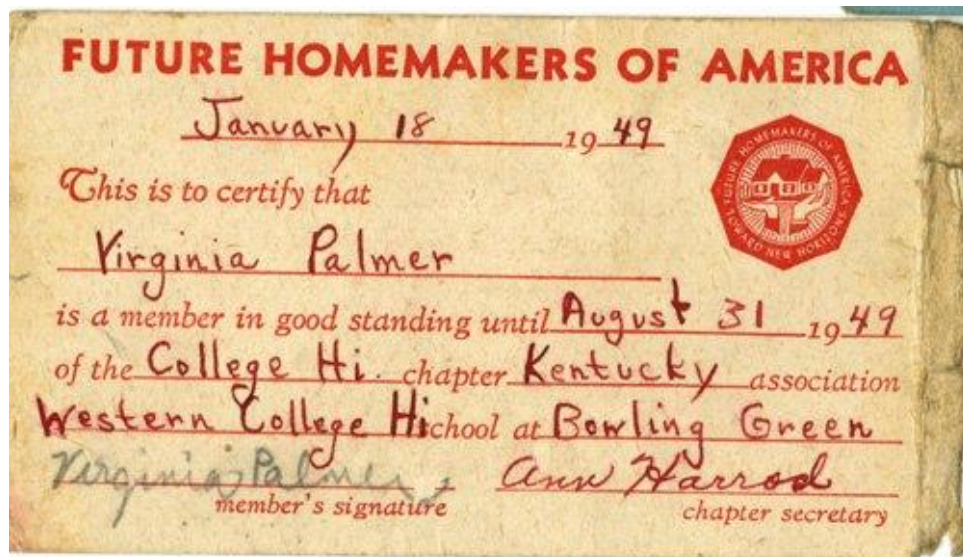 FUTURE HOMEMAKERS OF AMERICA
January 18 19 49
FUTURE HOMEMAKERS OF AMERICA
TOWARD NEW HORIZONS
This is to certify that
Virginia Palmer
is a member in good standing until August 31 19 49
of the College Hi. chapter Kentucky association
Western College Hi chool at Bowling Green
Virginia Palmer Ann Harrod
member's signature chapter secretary